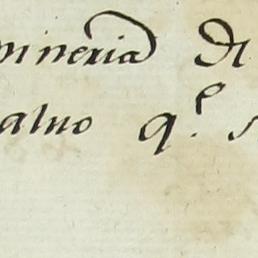 mineria di
aluo q.e